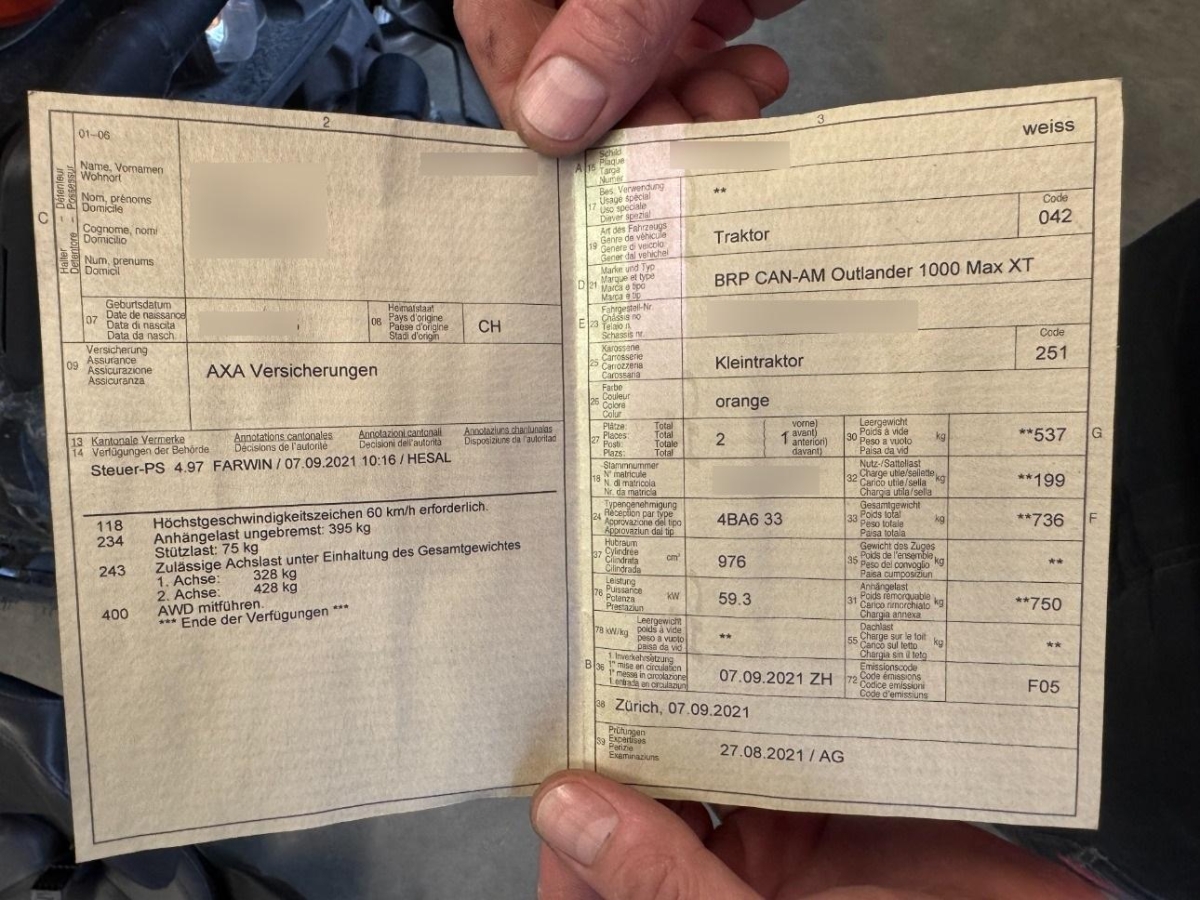 2
01-06
C
Halter Détenteur
Detentore Possessur
Name, Vornamen
Wohnort
Nom, prénoms
Domicile
Cognome, nomi
Domicilio
Num, prenums
Domicil
07
Geburtsdatum
Date de naissance
Data di nascita
Data da nasch.
08
Heimatstaat
Pays d'origine
Paese d'origine
Stadi d'origin
CH
09
Versicherung
Assurance
Assicurazione
Assicuranza
AXA Versicherungen
13 Kantonale Vermerke
14 Verfügungen der Behörde
Annotations cantonales
Décisions de l'autorité
Annotazioni cantonali
Decisioni dell'autorità
Annotaziuns chantunalas
Disposiziuns da l'autoritad
Steuer-PS 4.97 FARWIN / 07.09.2021 10:16 / HESAL
118 Höchstgeschwindigkeitszeichen 60 km/h erforderlich.
234 Anhängelast ungebremst: 395 kg
Stützlast: 75 kg
243 Zulässige Achslast unter Einhaltung des Gesamtgewichtes
1. Achse: 328 kg
2. Achse: 428 kg
400 AWD mitführen.
*** Ende der Verfügungen ***
3
weiss
A 15
Schild
Plaque
Targa
Numer
17
Bes. Verwendung
Usage spécial
Uso speciale
Diever spezial
**
19
Art des Fahrzeugs
Genre de véhicule
Genere di veicolo
Gener dal vehichel
Traktor
Code
042
D 21
Marke und Typ
Marque et type
Marca e tipo
Marca e tip
BRP CAN-AM Outlander 1000 Max XT
E 23
Fahrgestell-Nr.
Châssis no
Telaio n.
Schassis nr.
25
Karosserie
Carrosserie
Carrozzeria
Carossaria
Kleintraktor
Code
251
26
Farbe
Couleur
Colore
Colur
orange
27
Plätze: Total
Places: Total
Posti: Totale
Plazs: Total
2
1
vorne)
avant)
anteriori)
davant)
30
Leergewicht
Poids à vide
Peso a vuoto
Paisa da vid
kg
**537
G
18
Stammnummer
N° matricule
N. di matricola
Nr. da matricla
32
Nutz-/Sattellast
Charge utile/sellette
Carico utile/sella
Chargia utila/sella
kg
**199
24
Typengenehmigung
Réception par type
Approvazione del tipo
Approvaziun dal tip
4BA6 33
33
Gesamtgewicht
Poids total
Peso totale
Paisa totala
kg
**736
F
37
Hubraum
Cylindrée
Cilindrata
Cilindrada
cm³
976
35
Gewicht des Zuges
Poids de l'ensemble
Peso del convoglio
Paisa cumposiziun
kg
**
76
Leistung
Puissance
Potenza
Prestaziun
kW
59.3
31
Anhängelast
Poids remorquable
Carico rimorchiato
Chargia annexa
kg
**750
78 kW/kg
Leergewicht
poids à vide
peso a vuoto
paisa da vid
**
55
Dachlast
Charge sur le toit
Carico sul tetto
Chargia sin il tetg
kg
**
B 36
1. Inverkehrsetzung
1re mise en circulation
1a messa in circolazione
1. entrada en circulaziun
07.09.2021 ZH
72
Emissionscode
Code émissions
Codice emissioni
Code d'emissiuns
F05
38
Zürich, 07.09.2021
39
Prüfungen
Expertises
Perizie
Examinaziuns
27.08.2021 / AG